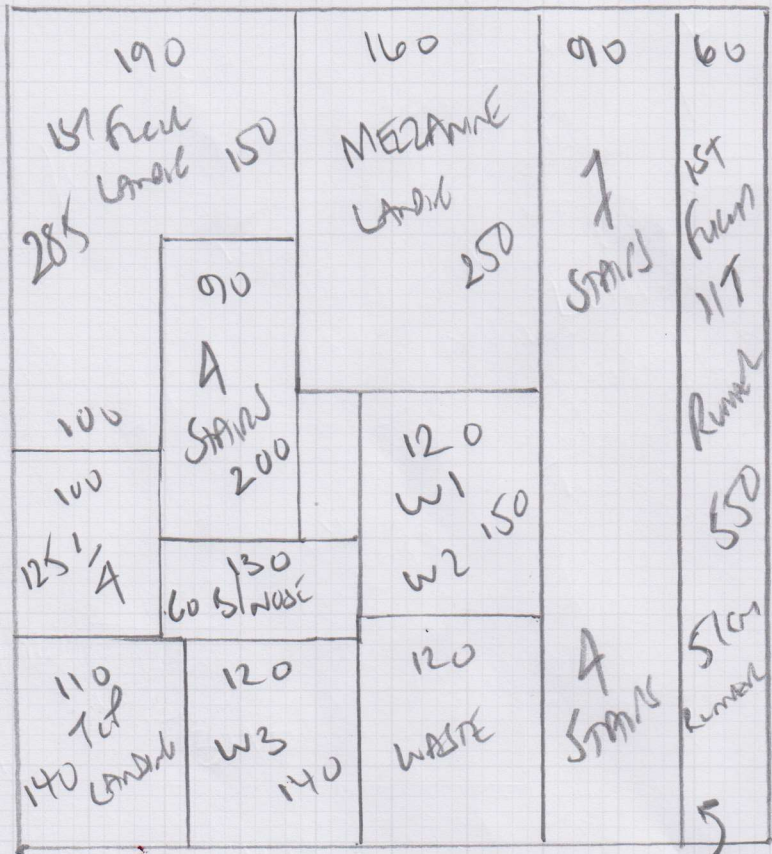 190
1ST FLOOR
LANDING 150
285
100
160
MEZZANINE
LANDING
250
90
7
STAIRS
60
1ST
FLOOR
RUNNER
550
51CM
RUNNER
90
4
STAIRS
200
120
W1
150
W2
100
125 1/4
130
60 B/NOSE
110
TOP
140 LANDING
120
W3
140
120
WASTE
4
STAIRS